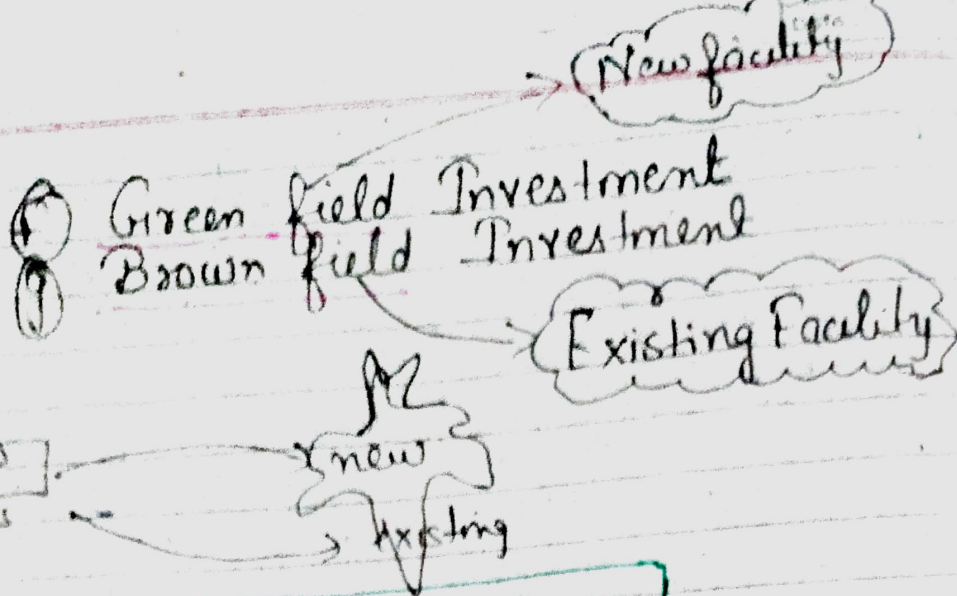 New facility
f Green field Investment
g Brown field Investment
Existing Facility
new
Existing